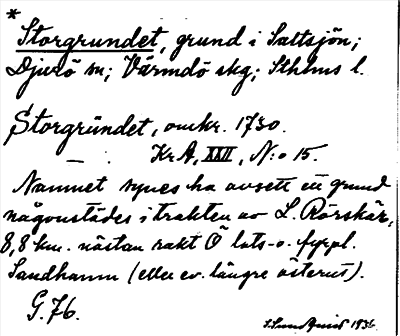 *
Storgrundet, grund i Saltsjön;
Djurö sn; Värmdö skg; Sthlms l.
Storgründet, omkr. 1730.
— . Kr A, XXII, N:o 15.
Namnet synes ha avsett en grund
någonstädes i trakten av L. Rörskär,
8,8 km. nästan rakt Ö lots- o. fyrpl.
Sandhamn (eller ev. längre österut).
G. 76.
1936